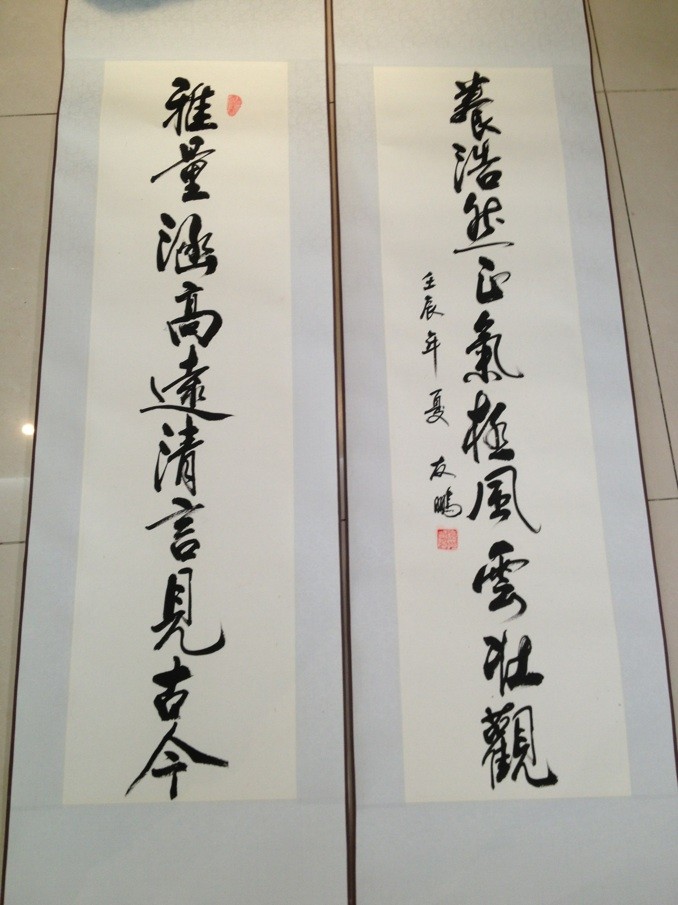 雅量涵高遠清言見古今
養浩然正氣極風雲壯觀
壬辰年夏 友鵬